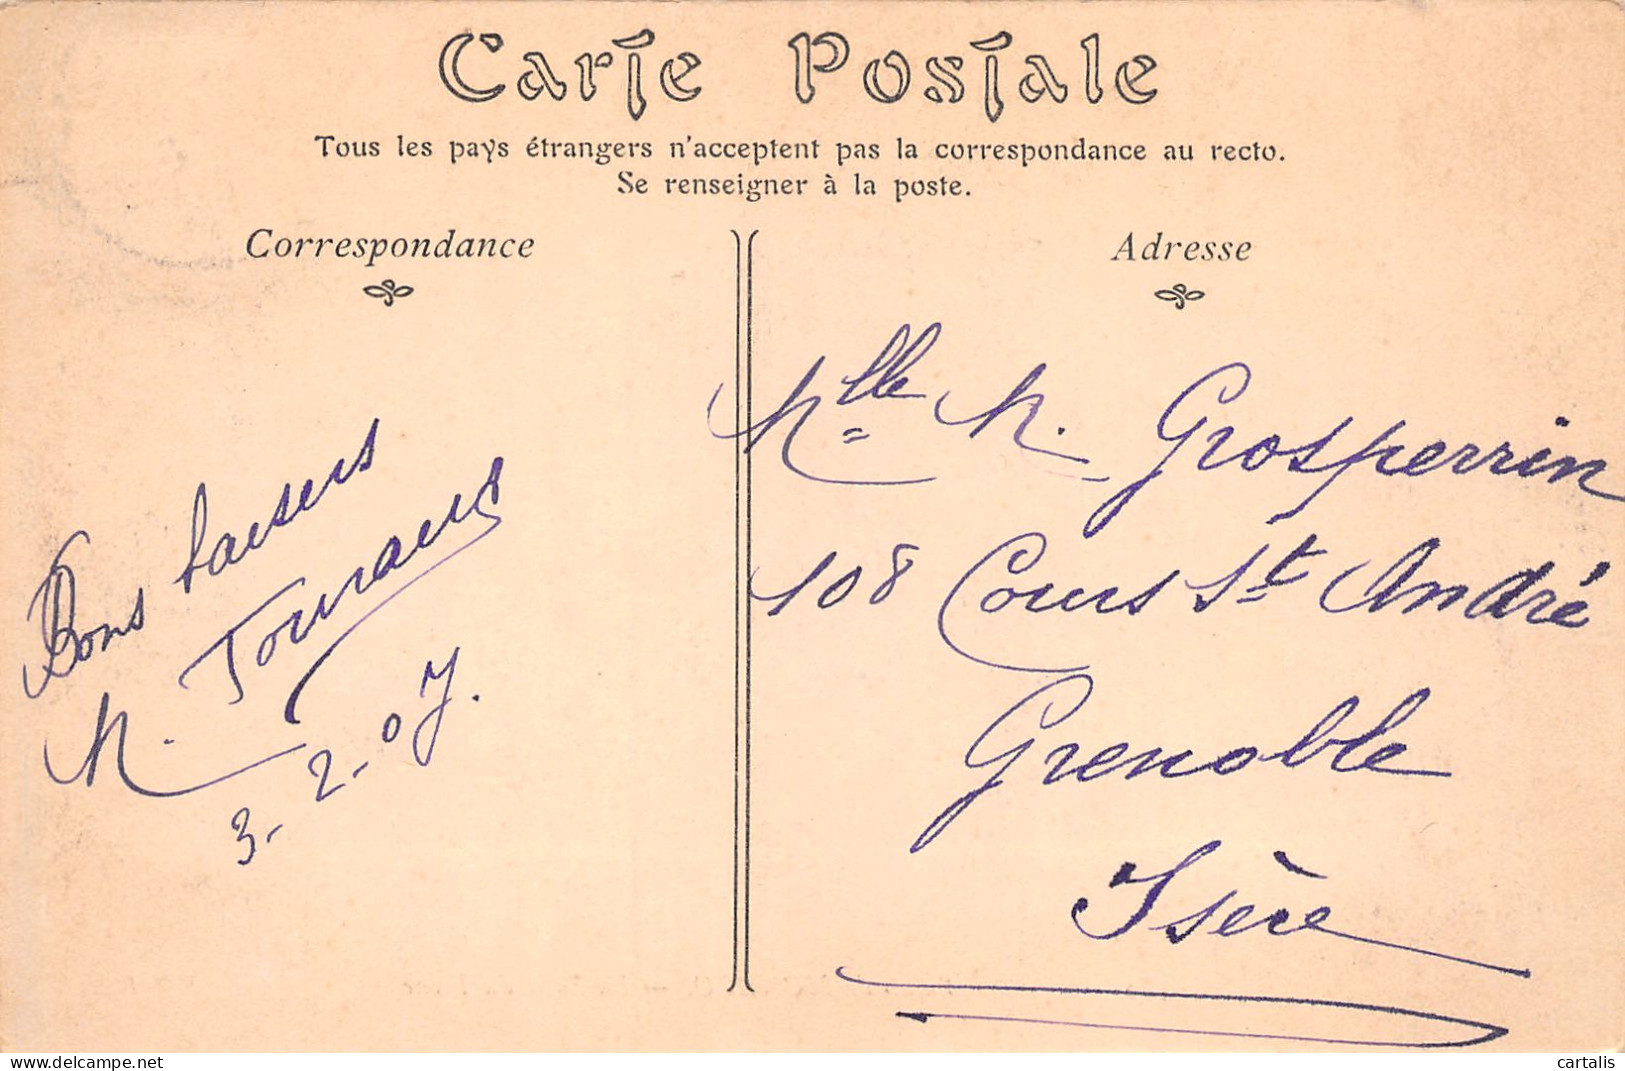 Carte Postale
Tous les pays étrangers n'acceptent pas la correspondance au recto.
Se renseigner à la poste.
Correspondance
Bons baisers
M.
3-2-07.
Adresse
Mlle M. Grosperrin
108 Cours St André
Grenoble
Isère
cartalis